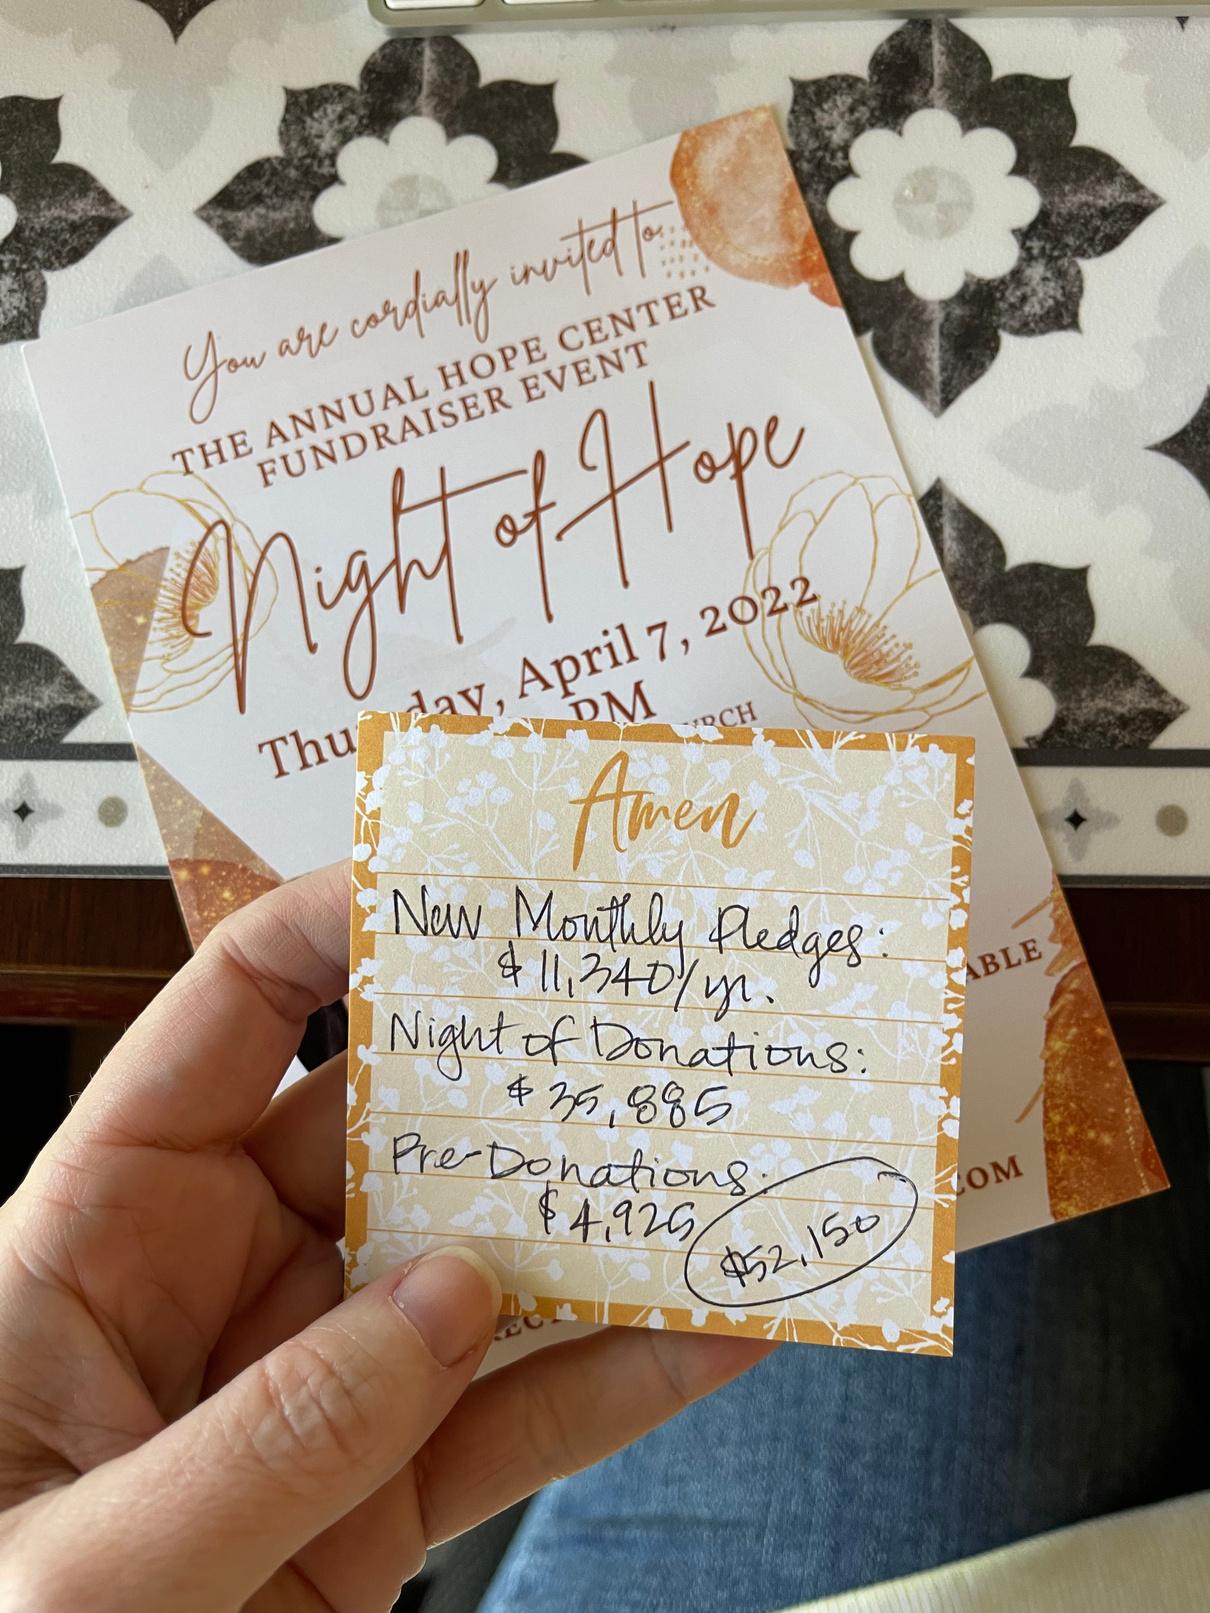 You are cordially invited to:
THE ANNUAL HOPE CENTER
FUNDRAISER EVENT
Night of Hope
Thu day, April 7, 2022
PM
Amen
New Monthly Pledges:
$11,340/yr.
Night of Donations:
$35,885
Pre-Donations:
$4,925
$52,150